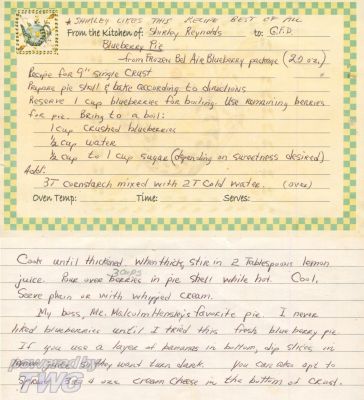 * SHIRLEY LIKES THIS RECIPE BEST OF ALL
From the Kitchen of: Shirley Reynolds to: G.F.D.
Blueberry Pie
from Frozen Bel Aire Blueberry package (20 oz.)
Recipe for 9" single crust
Prepare pie shell & bake according to directions
Reserve 1 cup blueberries for boiling. Use remaining berries
for pie. Bring to a boil:
1 cup crushed blueberries
1/2 cup water
1/2 cup to 1 cup sugar (depending on sweetness desired)
Add:
3T Cornstarch mixed with 2T Cold water. (over)
Oven Temp: Time: Serves:
Cook until thickened. When thick, stir in 2 Tablespoons lemon
3 cups
juice. Pour over berries in pie shell while hot. Cool,
Serve plain or with whipped cream.
My boss, Mr. Malcolm Hensley's favorite pie. I never
liked blueberries until I tried this fresh blueberry pie.
If you use a layer of bananas in bottom, dip slices in
juice so they wont turn dark. You can also opt to
spread 3 oz cream cheese in the bottom of crust.
powered by
TWG